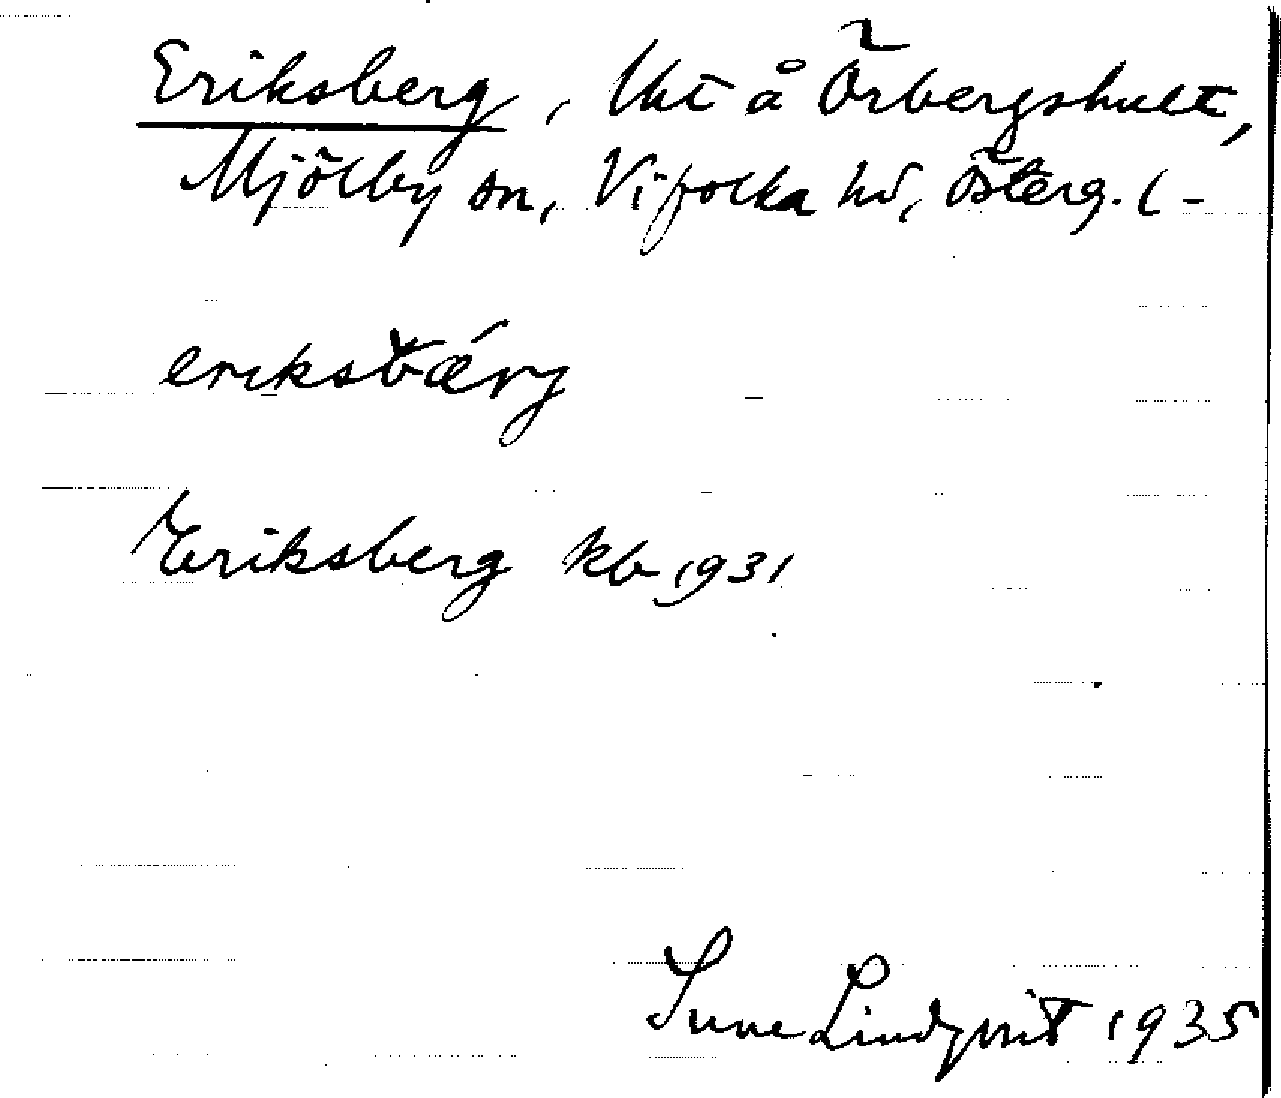 Eriksberg, lht å Örbergshult,
Mjölby sn, Vifolka hd, Österg. l -
eriksbærj
Eriksberg kb 1931
Sune Lindqvist 1935